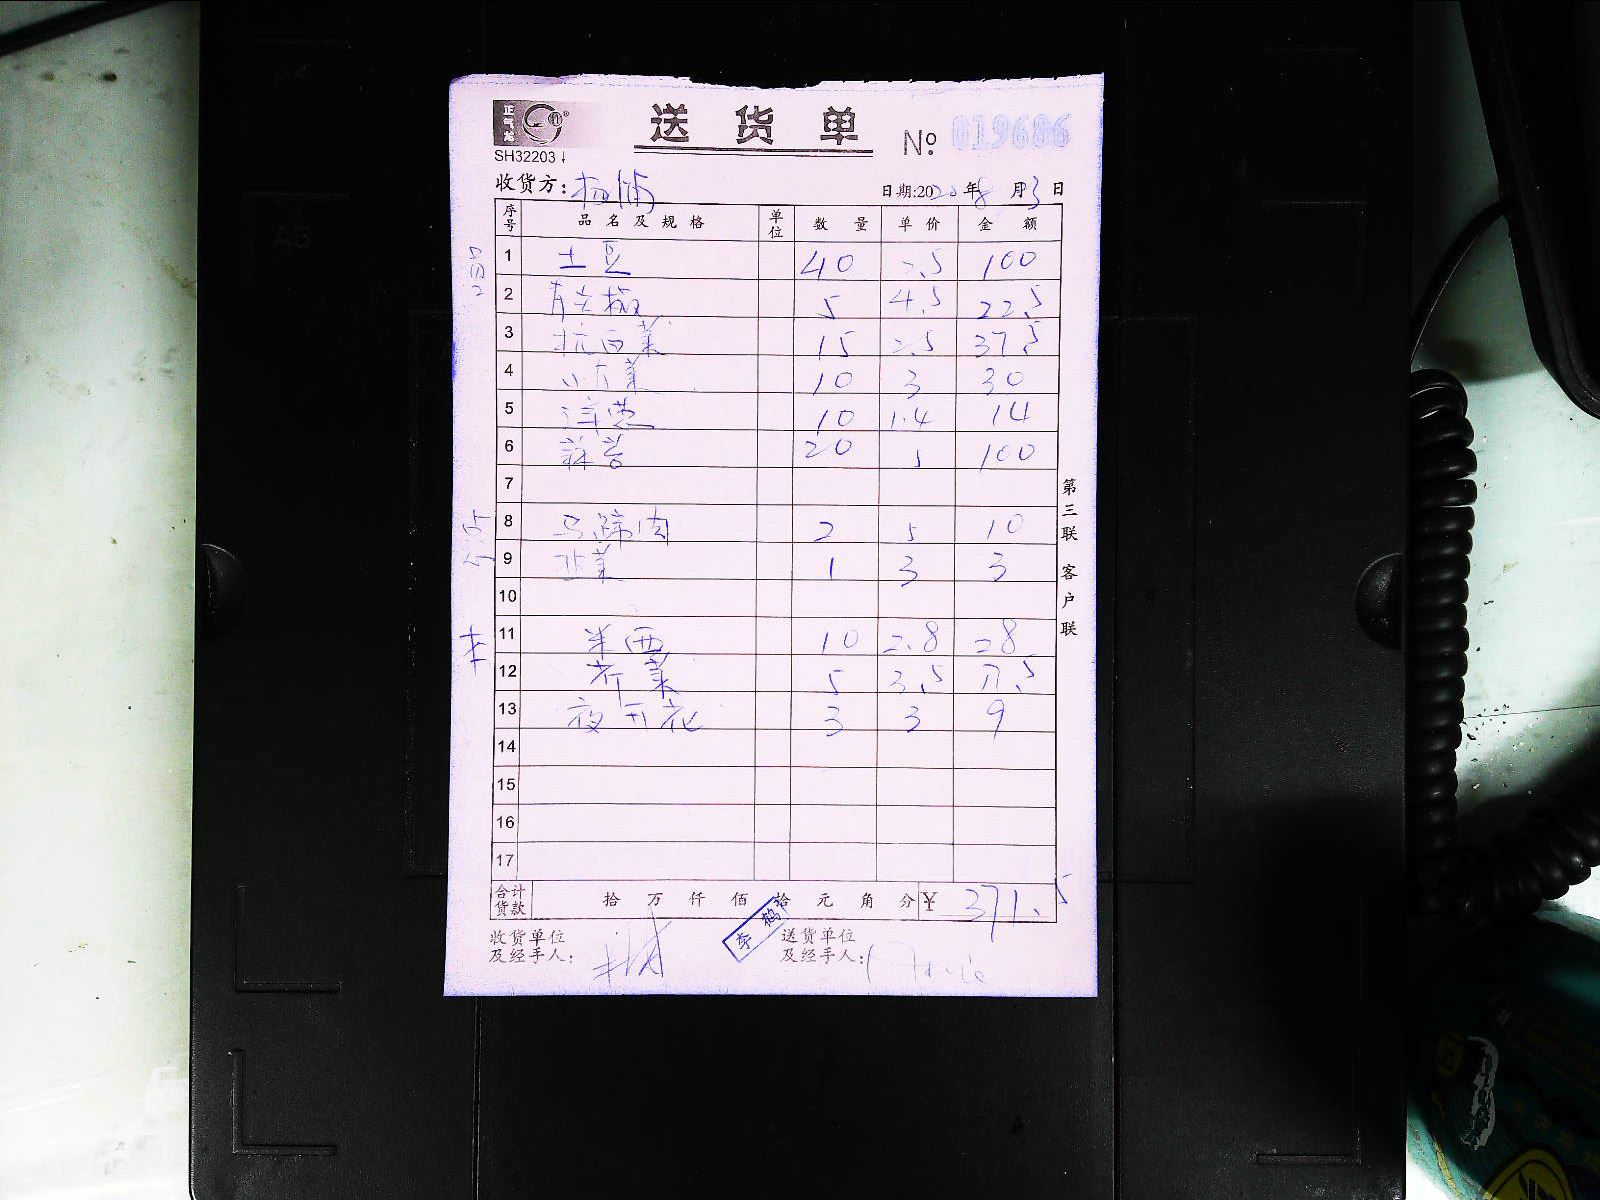 正气龙
SH32203
送货单 № 019686
收货方: 杨浦 日期:2020年8月3日
序号 品名及规格 单位 数量 单价 金额
1 土豆 40 2.5 100
2 青尖椒 5 4.5 22.5
3 杭白菜 15 2.5 37.5
4 小方菜 10 3 30
5 洋葱 10 1.4 14
6 蘑菇 20 5 100
7
8 马蹄肉 2 5 10
9 韭菜 1 3 3
10
11 米西 10 2.8 28
12 芹菜 5 3.5 17.5
13 夜开花 3 3 9
14
15
16
17
合计货款 拾 万 仟 佰 拾 元 角 分 ¥ 371.5
收货单位及经手人:
李鹤
送货单位及经手人:
第三联 客户联
A4
A5